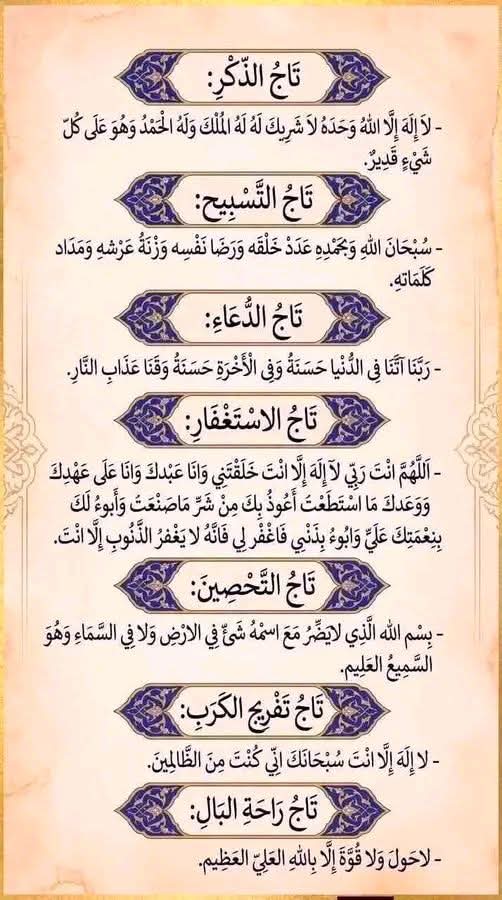 تَاجُ الذِّكْرِ:
- لاَ إِلَهَ إِلَّا اللهُ وَحَدَهُ لاَ شَرِيكَ لَهُ لَهُ المُلْكَ وَلَهُ الْحَمْدُ وَهُوَ عَلَى كُلّ
شَيْءٍ قَدِيرٌ.
تَاجُ التَّسْبِيح:
- سُبْحَانَ اللهِ وَبِحَمْدِهِ عَدَدْ خَلْقَه وَرَضَا نَفْسِه وَزْنَةُ عَرْشهِ وَمَدَاد
كَلَمَاتهِ.
تَاجُ الدُّعَاءِ:
- رَبَّنَا آتَّنَا فِى الدُّنْيا حَسَنَةُ وَفِى الْأَخْرَةِ حَسَنَةُ وَقَنَا عَذَابِ النَّارِ.
تَاجُ الاسْتَغْفَارِ:
- اَللَّهُمَّ انْتَ رَبِّي لآ إِلَهَ إِلَّا انْتَ خَلَقْتَنِي وَانَا عَبْدكَ وَانَا عَلَى عَهْدِكَ
وَوَعَدكَ مَا اسْتَطَعْتْ أَعُوذُ بِكَ مِنْ شَرِّ مَاصَنْعَتْ وَأَبوءُ لَكَ
بِنِعْمَتِكَ عَلَيَّ وَابُوءُ بِذَنْبِي فَاغْفْر لِي فَانَّهُ لا يَغْفْرُ الذَّنُوبِ إِلَّا انْتَ.
تَاجُ التَّحْصِينَ:
- بِسْم الله الَّذِي لايَضِّرُ مَعَ اسمْهُ شَئٌ فِي الارْضِ وَلا فِي السَّمَاءِ وَهُوَ
السَّمِيعُ العَلِيم.
تَاجُ تَفْرِيج الكَرَبِ:
- لا إِلَهَ إِلَّا انْتَ سُبْحَانَكَ اِنِّي كُنْتَ مِنَ الظَّالِمِينَ.
تَاجُ رَاحَةِ البَالِ:
- لاحَولَ وَلا قُوَّةَ إِلَّا بِاللهِ العَلِيّ العَظِيم.